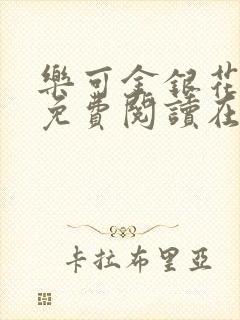 樂可金銀花
免費閱讀在
卡拉布里亞